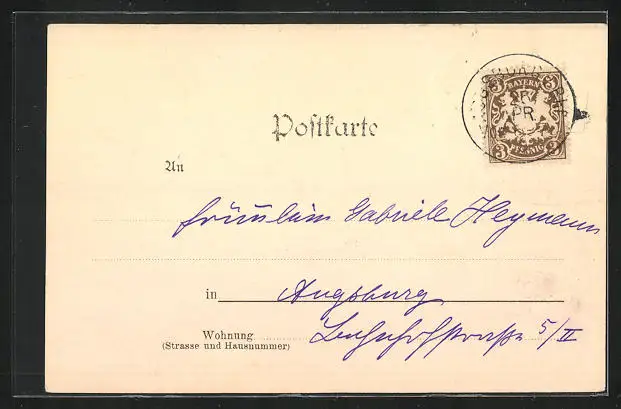 3 BAYERN 3
PR.
3 PFENNIG 3
Postkarte
An
Fräulein Gabriele Heymann
in Augsburg
Wohnung Bahnhofstrasse 5/II
(Strasse und Hausnummer)